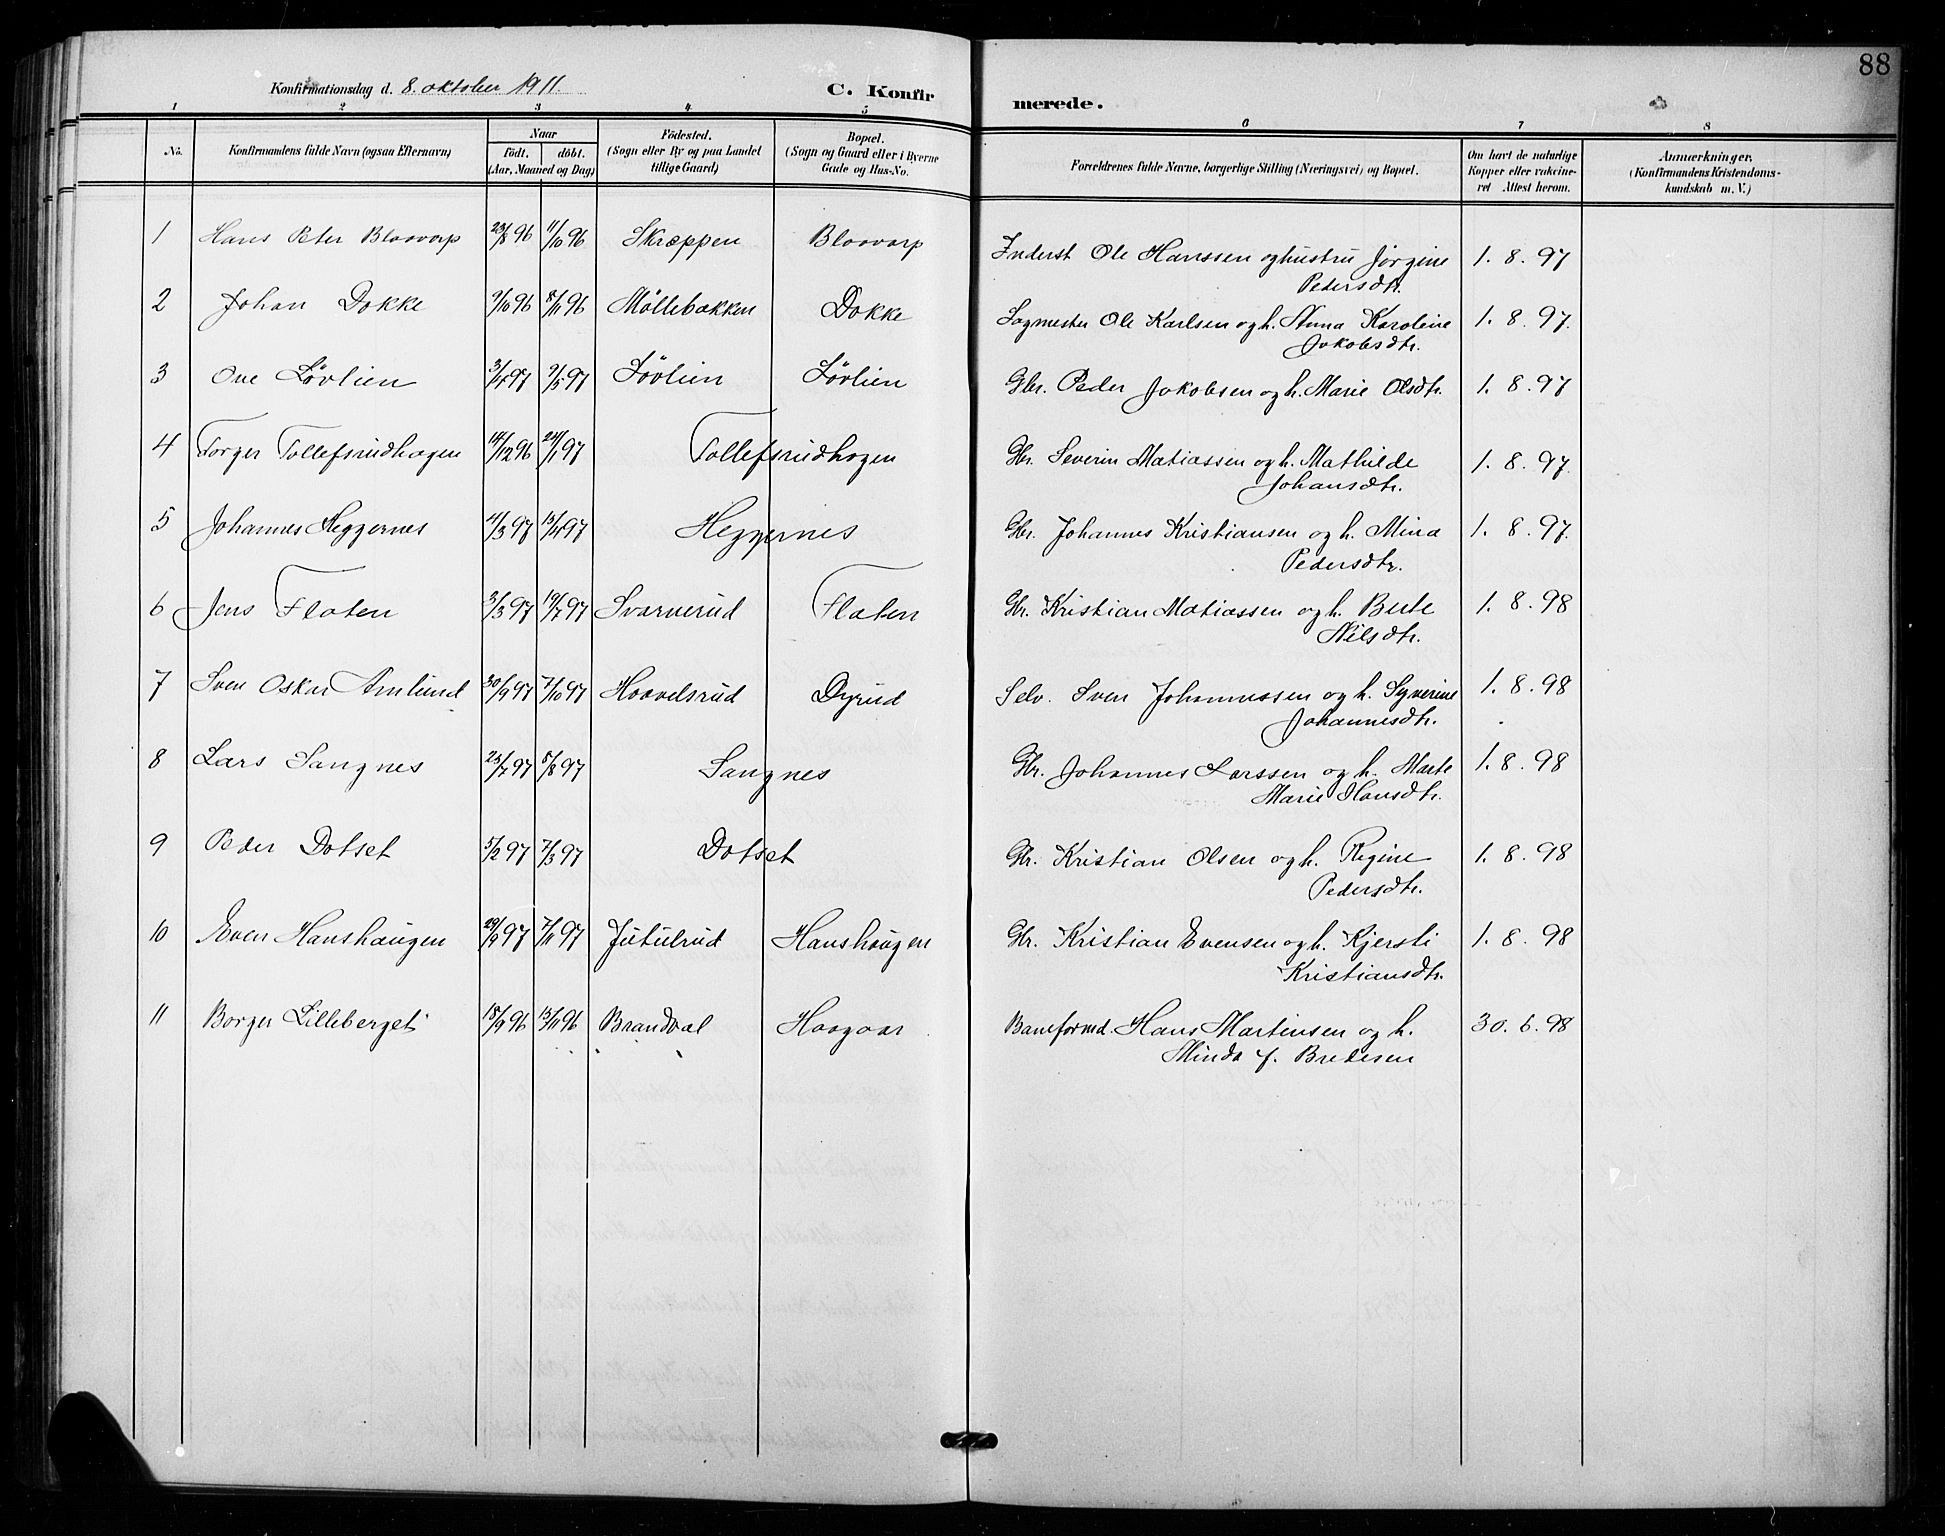 88
Konfirmationsdag d. 8. oktober 1911. C. Konfirmerede.
1 2 3 4 5 6 7 8
No. Konfirmandens fulde Navn (ogsaa Efternavn) Naar Födested. Bopæl. Forældrenes fulde Navne, borgerlige Stilling (Næringsvei) og Bopæl. Om havt de naturlige Anmærkninger.
födt. döbt. (Sogn eller By og paa Landet (Sogn og Gaard eller i Byerne Kopper eller vakcine- (Konfirmandens Kristendoms-
(Aar, Maaned og Dag) tillige Gaard) Gade og Hus-No. ret Attest herom. kundskab m. V.)
1 Hans Peter Blaavarp 23/8 96 11/10 96 Skræppen Blaavarp Inderst Ole Hanssen og hustru Jørgine 1. 8. 97
Pedersdtr.
2 Johan Dokke 9/10 96 8/11 96 Møllebakken Dokke Sagmester Ole Karlsen og h. Anna Karoline 1. 8. 97.
Jakobsdtr.
3 Ove Løvlien 3/4 97 9/5 97 Løvlien Løvlien Gbr. Peder Jakobsen og h. Marie Olsdtr. 1. 8. 97
4 Torger Tollefsrudhagen 14/12 96 24/1 97 Tollefsrudhagen Gbr. Severin Matiassen og h. Mathilde 1. 8. 97.
Johansdtr.
5 Johannes Heggernes 11/3 97 13/4 97 Heggernes Gbr. Johannes Kristiansen og h. Mina 1. 8. 97.
Pedersdtr.
6 Jens Flaten 31/3 97 19/7 97 Svarverud Flaten Gbr. Kristian Matiassen og h. Berte 1. 8. 98
Nilsdtr.
7 Sven Oskar Amlund 30/9 97 7/10 97 Haavelsrud Dyrud Selv. Sven Johannessen og h. Syverine 1. 8. 98
Johannesdtr.
8 Lars Sangnes 23/7 97 8/8 97 Sangnes Gbr. Johannes Larssen og h. Marte 1. 8. 98
Marie Hansdtr.
9 Peder Dotset 5/2 97 7/3 97 Dotset Gbr. Kristian Olsen og h. Regine 1. 8. 98
Pedersdtr.
10 Even Hanshaugen 29/9 97 7/11 97 Jutulrud Hanshaugen Gbr. Kristian Evensen og h. Kjersti 1. 8. 98
Kristiansdtr.
11 Borger Lilleberget 18/9 96 13/11 96 Brandval Haagaar Baneformd. Hans Martinsen og h. 30. 6. 98
Minda f. Bredesen